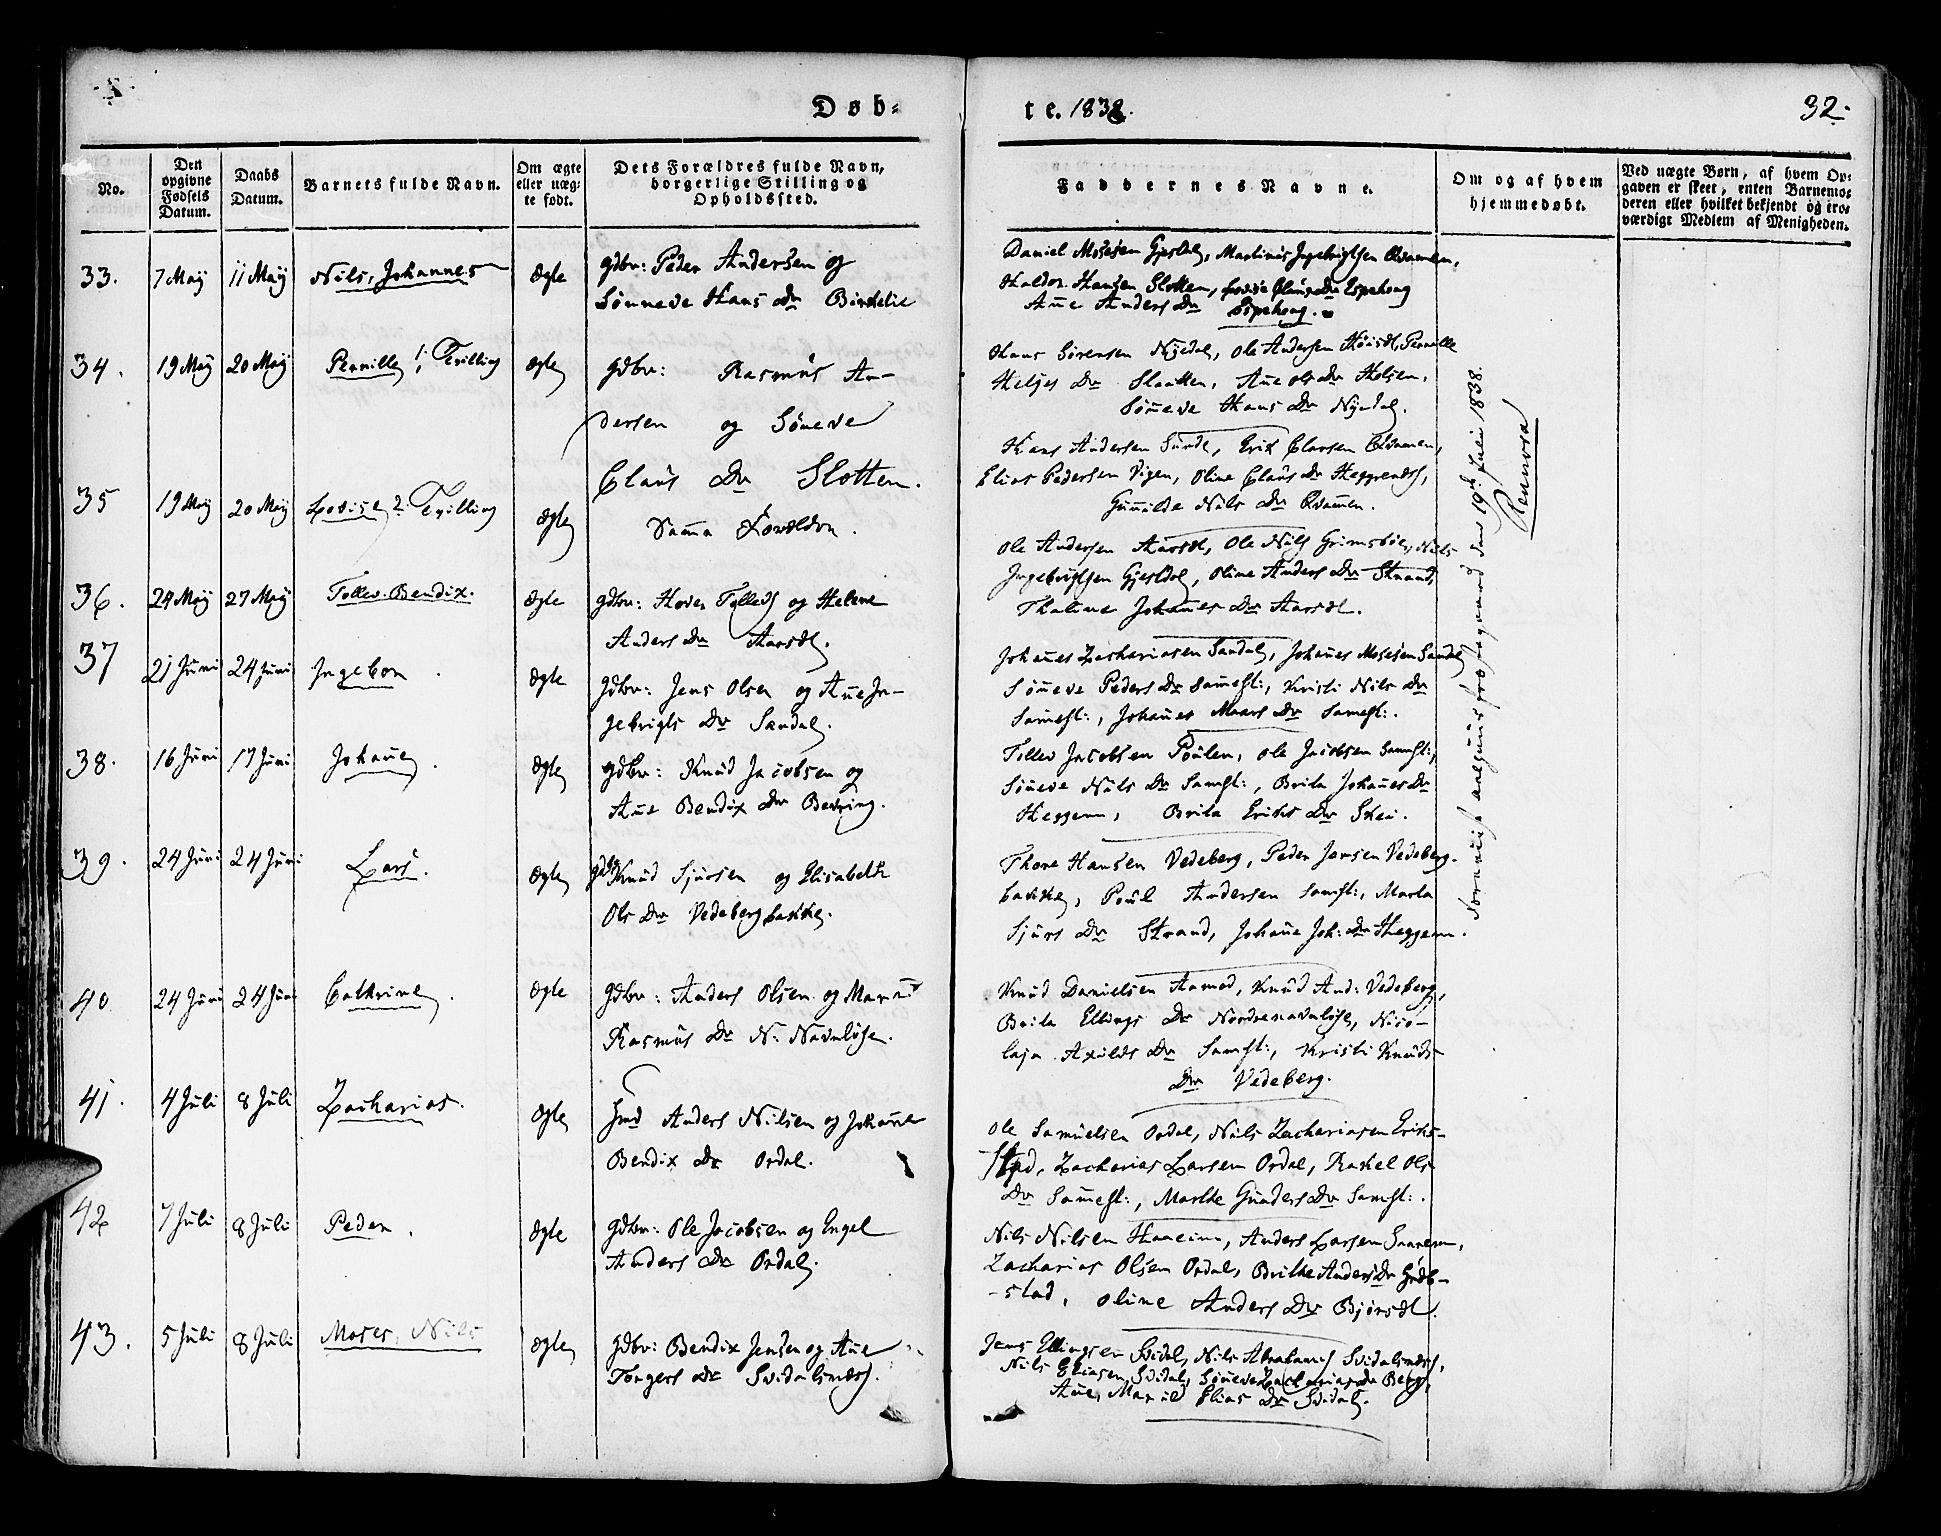 Døb-
te. 1838.
32.
No.
Den opgivne Fødsels Datum.
Daabs Datum.
Barnets fulde Navn.
Om ægte eller uæg-
te født.
Dets Forældres fulde Navn,
borgerlige Stilling og
Opholdssted.
Faddernes Navne.
Om og af hvem
hjemmedøbt.
Ved uægte Børn, af hvem Op-
gaven er skeet, enten Barnemo-
deren eller hvilket bekjendt og tro-
værdigt Medlem af Menigheden.
33. 7 Maÿ 11 Maÿ Nils, Johannes Ægte Gdbr: Peder Andersen og
Sønneve Hans Dr Birkelie
Daniel Mosesen Gjesdal, Martinus Ingebrigtsen Qvamen,
Haldor Hansen Slotten, Dr Espehoug
Ane Anders Dr Espehoug.
34. 19 Maÿ 20 Maÿ Pernille 1. Tvilling Ægte Gdbr: Rasmus An-
dersen og Søneve
Claus Dr Slotten.
Hans Sørensen Nÿedal, Ole Andersen Pernille
Helges Dr Slaatten, Ane Ols Dr Holsen,
Søneve Hans Dr Nÿedal.
35 19 Maÿ 20 Maÿ Lovise 2. Tvilling Ægte Samma Forældre.
Hans Andersen Sunde, Erik Clausen Qvamen,
Elias Pedersen Vigen, Oline Claus Dr
Gunilde Nils Dr Qvamen.
36. 24 Maÿ 27 Maÿ Tollev. Bendix. Ægte Gdbr: Tollevs og Helene
Anders Dr Aarsdl.
Ole Andersen Aarsdl, Ole Nils Grimsbøe, Nils
Ingebrigtsen Gjesdal, Oline Anders Dr Strand,
Thaline Johanes Dr Aarsdl.
37 21 Juni 24 Juni Ingebor. Ægte Gdbr: Jens Olsen og Ane In-
gebrigts Dr Sandal.
Johanes Zachariasen Sandal, Johanes Mosesen Sandal
Søneve Peders Dr Samest:, Kristi Nils Dr
Samest:, Johanes Dr Samest:.
38. 16 Juni 17 Juni Johane. Ægte Gdbr: Knud Jacobsen og
Ane Bendix Dr Bevring.
Tollev Jacobsen Poulen, Ole Jacobsen Samst:,
Søneve Nils Dr Samst:, Brita Johanes Dr
Heggenn, Brita Eriks Dr Skei.
39. 24 Juni 24 Juni Lars. Ægte Gdbr Knud Sjursen og Elisabeth
Ols Dr Vedebergbakke.
Thore Hansen Vedeberg, Peder Jensen Vedeberg-
bakke, Poul Andersen Samst:, Marta
Sjurs Dr Strand, Johane Joh: Dr Heggenn.
40 24 Juni 24 Juni Cathrine. Ægte Gdbr: Anders Olsen og
Rasmus Dr N: Navnløse.
Knud Danielsen And: Vedeberg,
Brita Ellings Dr Nordrenavnløse, Nico-
laja Dr Samst:, Kristi Knuds
Dr Vedeberg.
41. 4 Juli 8 Juli Zacharias. Ægte Anders Nilsen og Johane
Bendix Dr Ordal.
Ole Samuelsen Ordal, Nils Zachariasen Eriks-
stad, Zacharias Larsen Ordal, Rakel Ols
Dr Samest:, Marthe Gunders Dr Samst:.
42 7 Juli 8 Juli Peder. Ægte Gdbr: Ole Jacobsen og Engel
Anders Dr Ordal.
Nils Nilsen Anders Larsen
Zacharias Olsen Ordal, Brithe Anders Dr
-stad, Oline Anders Dr Bjørsdl.
43. 5 Juli 8 Juli Moses, Nils Ægte Gdbr: Bendix Jensen og Ane
Torgers Dr Svidalsnæss.
Jens Ellingsen Svidal, Nils Abrahams Svidalsnæss,
Nils Eliasen Svidal, Søneve Zacharias Dr Berg,
Ane, Elias Dr Svidal.
den 19de Juli 1838.